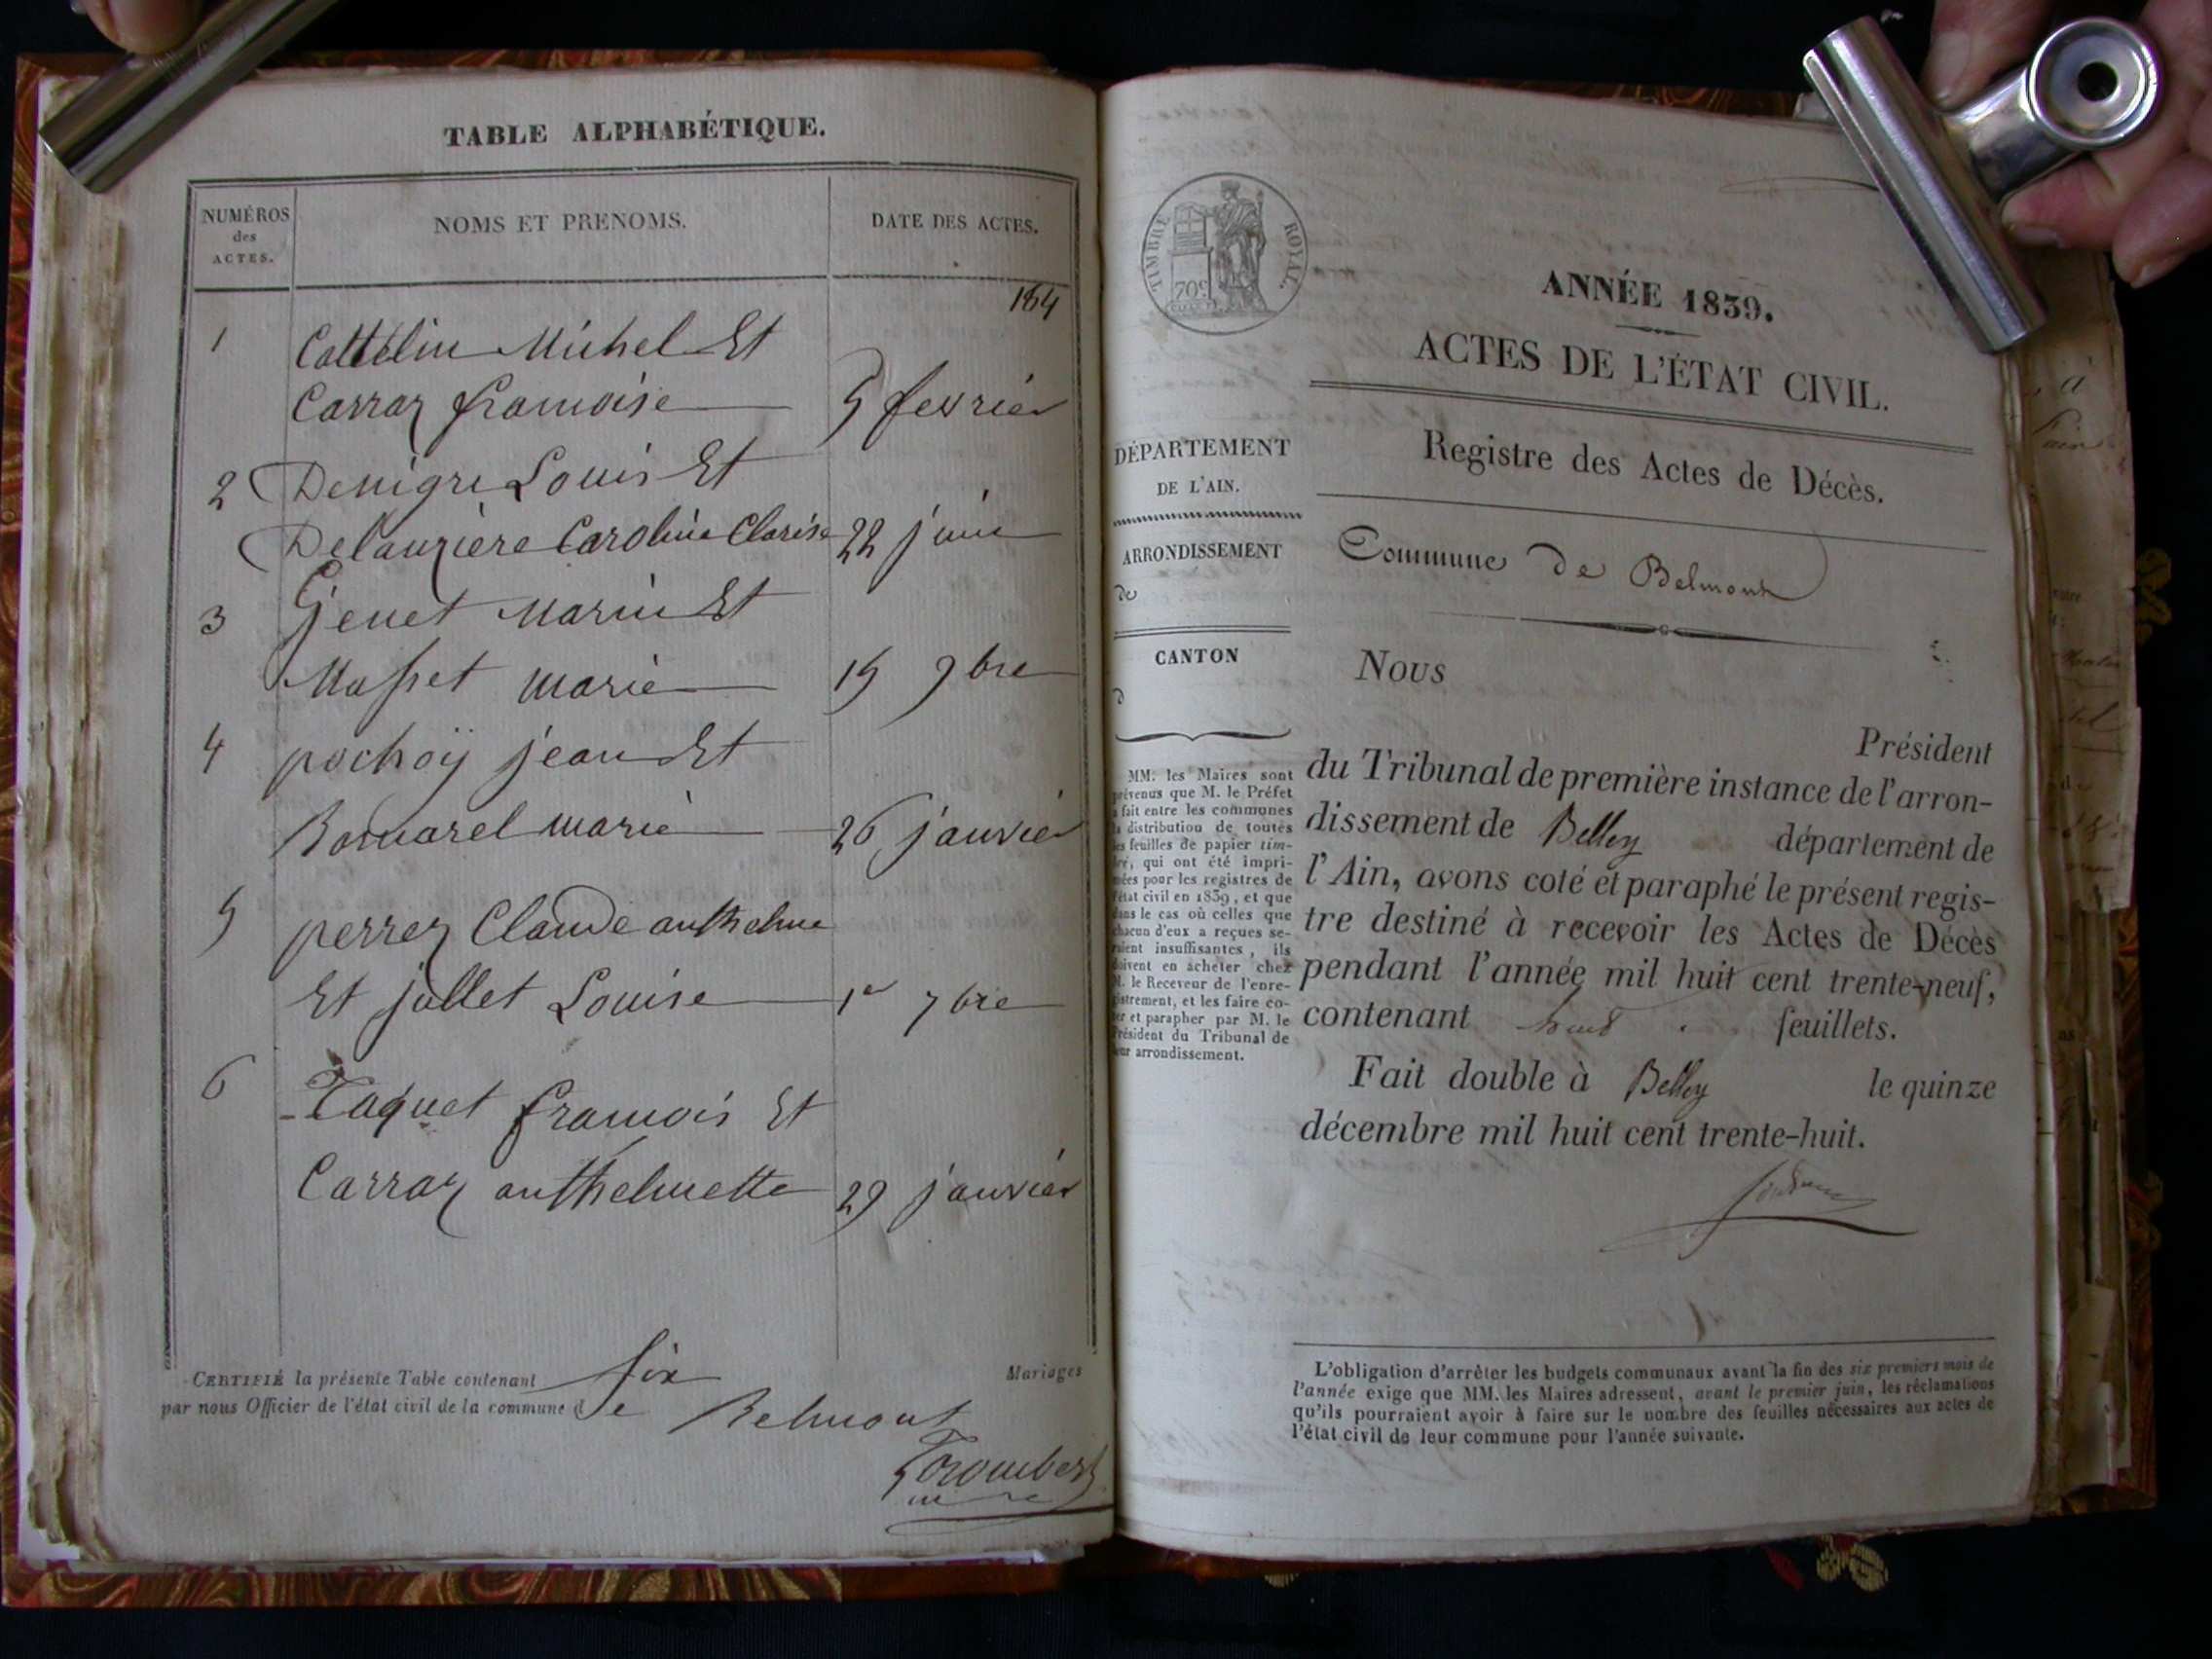 TABLE ALPHABÉTIQUE.
NUMÉROS
des
ACTES.
NOMS ET PRENOMS.
DATE DES ACTES.
184
1 Cattelin Michel Et
Carraz françoise 5 fevrier
2 Denigri Louis Et
Delauziere Caroline Clarise 22 juin
3 Genet Marin Et
Masset marie 15 9bre
4 pochoÿ jean Et
Bornarel marie 26 janvier
5 perrez Claude anthelme
Et jullet Louise 1er 7bre
6 Taquet françois Et
Carraz anthelmette 29 janvier
CERTIFIÉ la présente Table contenant Six Mariages
par nous Officier de l'état civil de la commune de Belmont
Trombert
TIMBRE ROYAL.
70c
ANNÉE 1839.
ACTES DE L'ÉTAT CIVIL.
Registre des Actes de Décès.
Commune De Belmont
DÉPARTEMENT
DE L'AIN.
ARRONDISSEMENT
de
CANTON
d
MM. les Maires sont
prévenus que M. le Préfet
a fait entre les communes
la distribution de toutes
les feuilles de papier tim-
bré, qui ont été impri-
mées pour les registres de
l'état civil en 1839, et que
dans le cas où celles que
chacun d'eux a reçues se-
raient insuffisantes, ils
doivent en acheter chez
M. le Receveur de l'enre-
gistrement, et les faire co-
ter et parapher par M. le
Président du Tribunal de
leur arrondissement.
Nous
Président
du Tribunal de première instance de l'arron-
dissement de Belley département de
l'Ain, avons coté et paraphé le présent regis-
tre destiné à recevoir les Actes de Décès
pendant l'année mil huit cent trente-neuf,
contenant feuillets.
Fait double à Belley le quinze
décembre mil huit cent trente-huit.
L'obligation d'arrêter les budgets communaux avant la fin des six premiers mois de
l'année exige que MM. les Maires adressent, avant le premier juin, les réclamations
qu'ils pourraient avoir à faire sur le nombre des feuilles nécessaires aux actes de
l'état civil de leur commune pour l'année suivante.